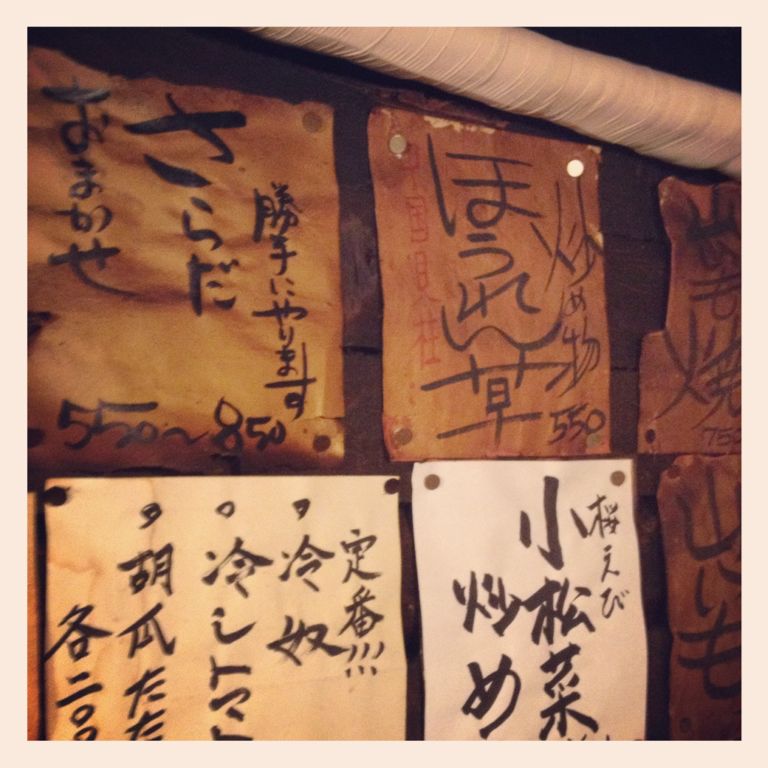 勝手にやります
さらだ
おまかせ
550〜850
炒め物
ほうれん草
550
焼
750
定番!!!
・冷奴
・冷しトマト
・胡瓜たた
各二〇〇
桜えび
小松菜
炒め
山いも